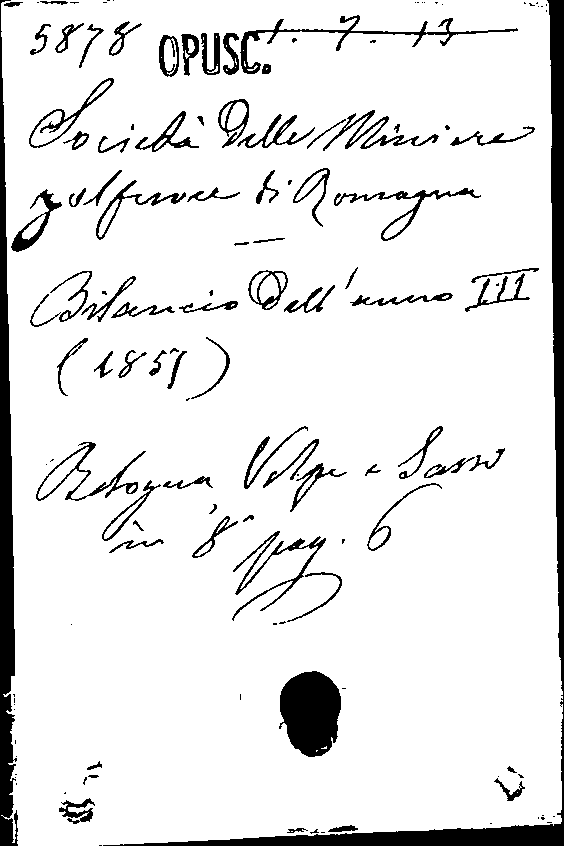 5878 OPUSC. 1. 7. 13
Società Delle Miniere
zolferose di Romagna
Bilancio Dell'anno III
(1851)
Bologna, Volpe e Sasso
in 8° pag. 6